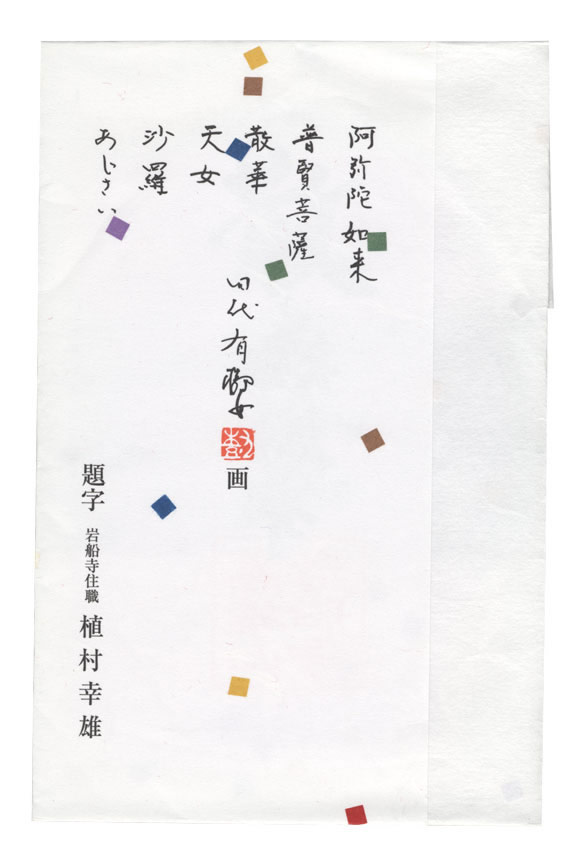 阿弥陀如来
普賢菩薩
散華
天女
沙羅
あじさい
田代有樹女
画
題字 岩船寺住職 植村幸雄